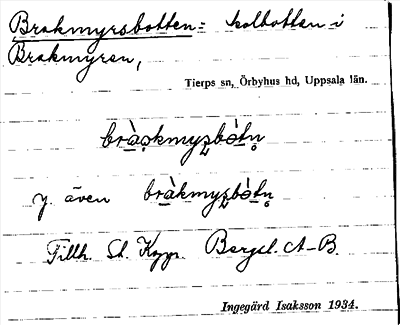 Brakmyrsbotten = kolbotten i
Brakmyren,
Tierps sn, Örbyhus hd, Uppsala län.
bràkmyʂbòtn̥
y. även bràkmyʂbòtn̥
Tillh. St. Koppr. Bergsl. A-B.
Ingegärd Isaksson 1934.